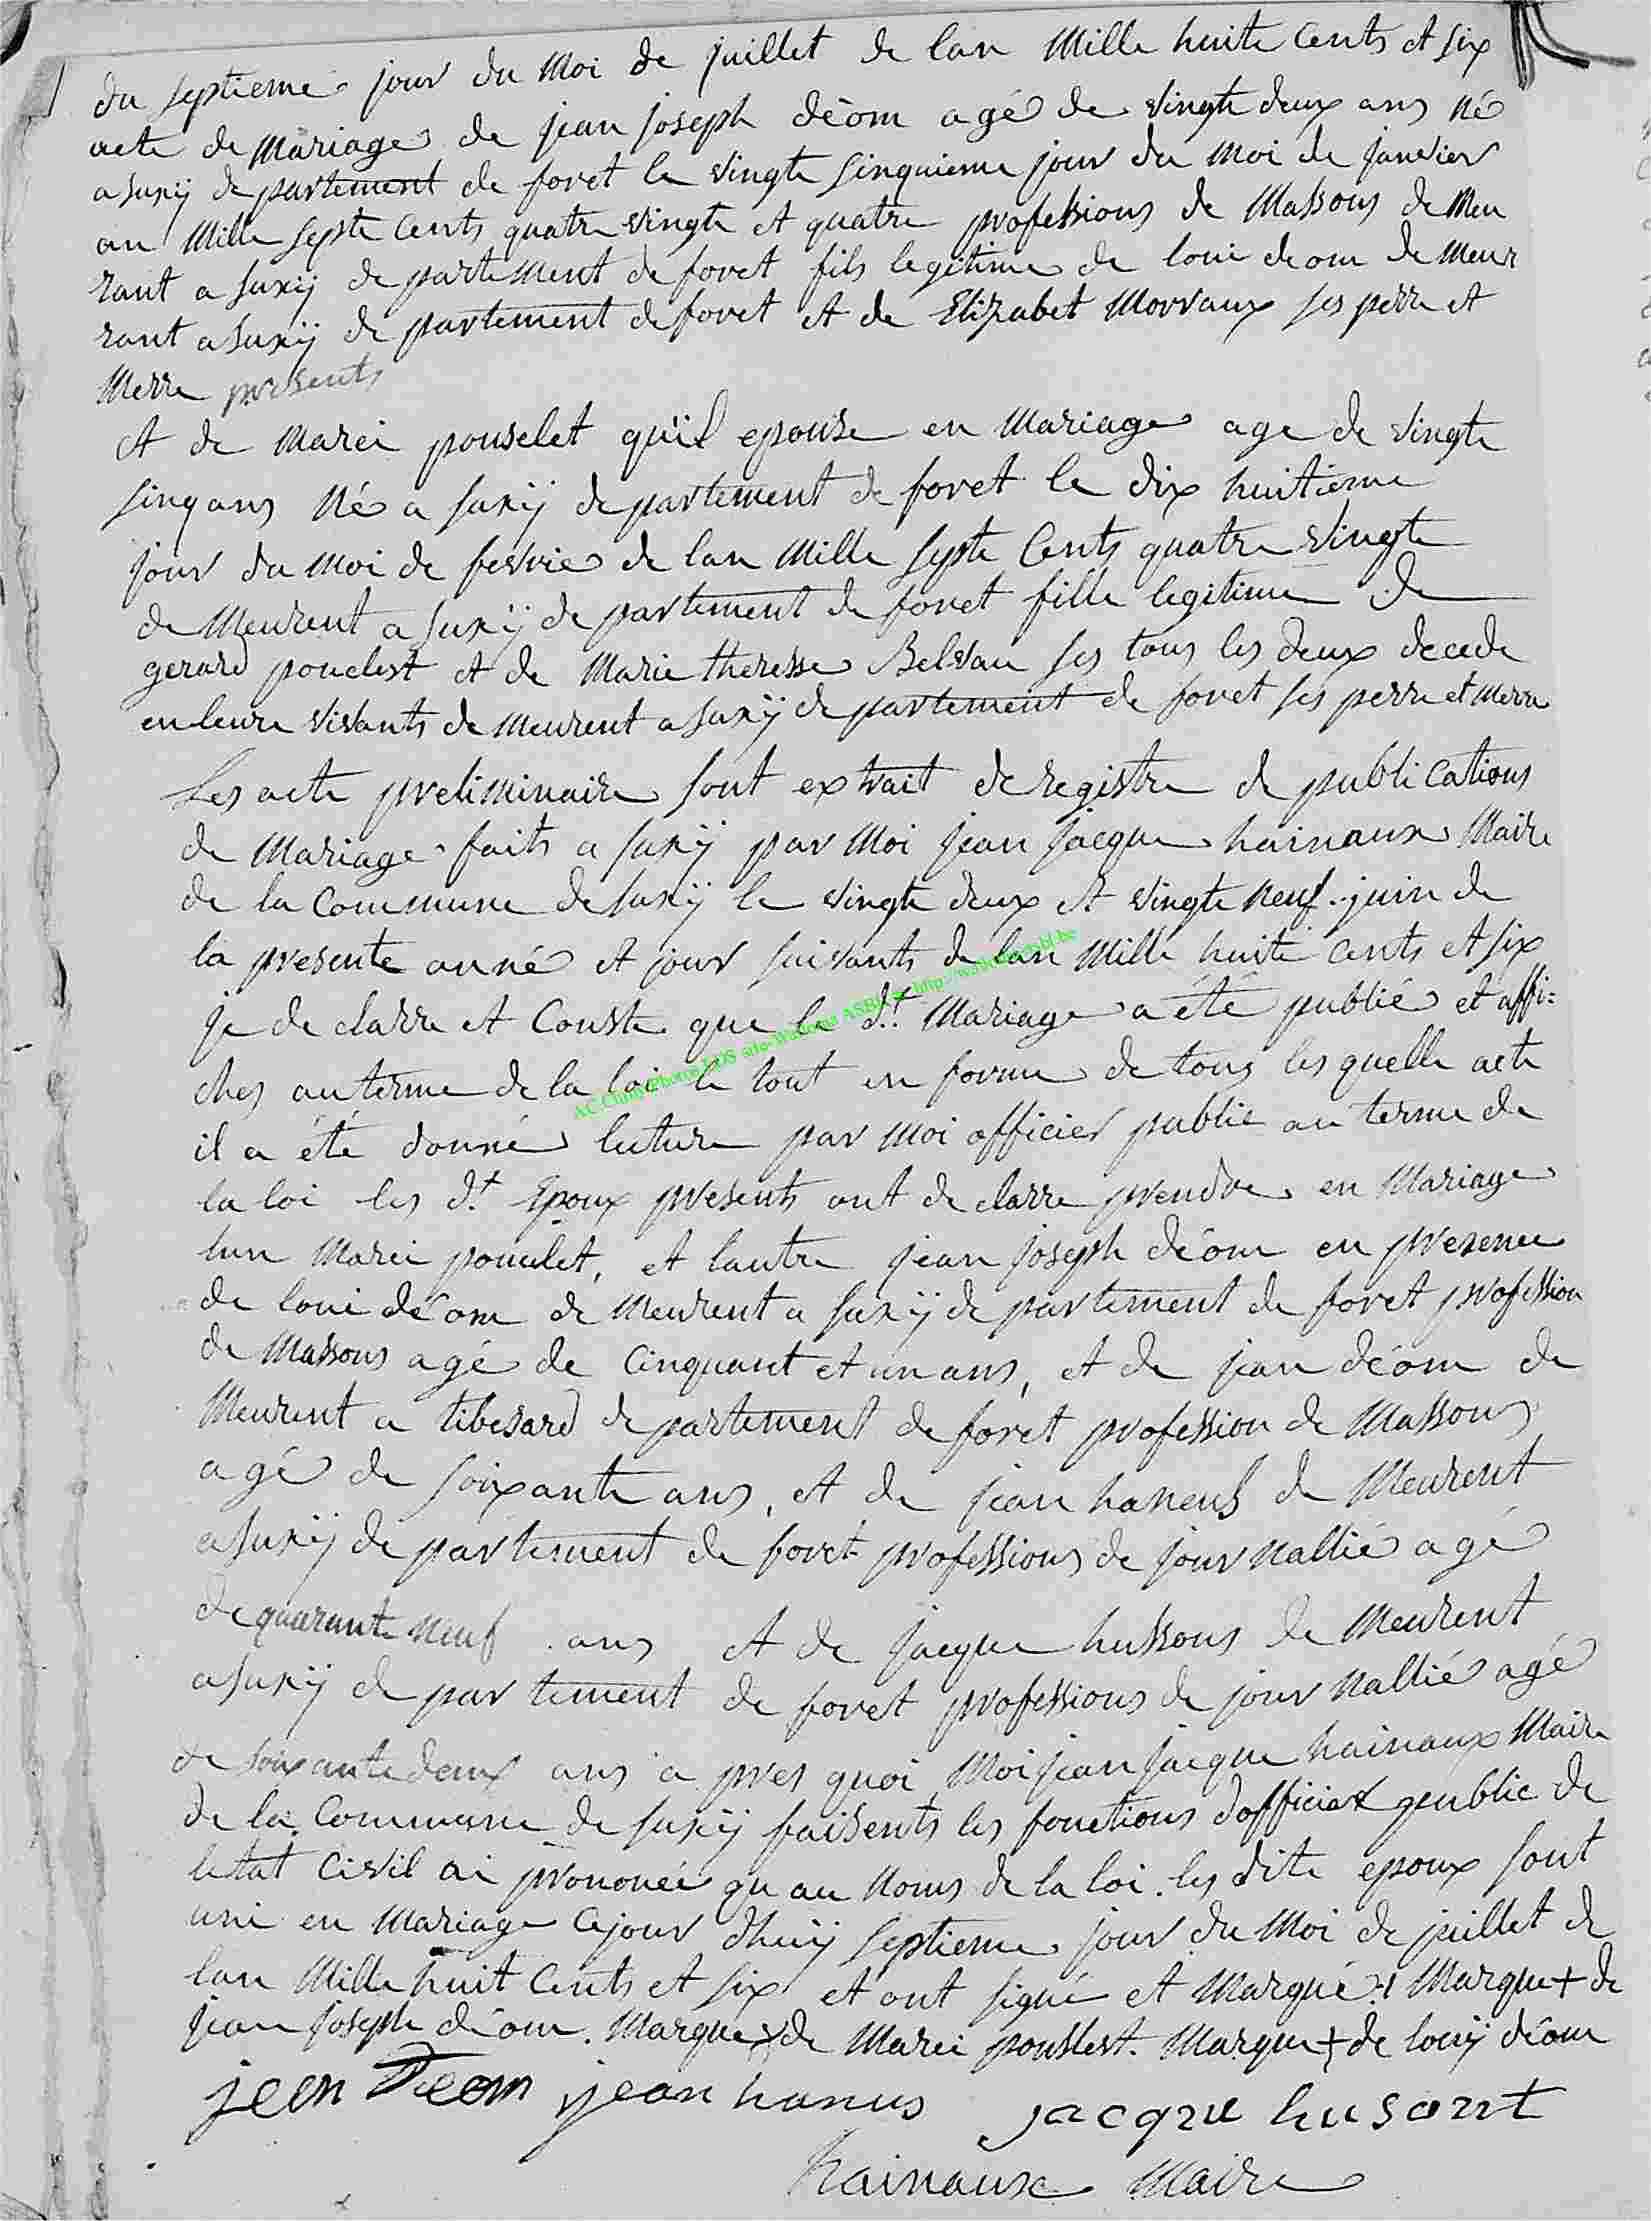 du septieme jour du Moi de juillet de lan Mille huite Cents et six
acte de Mariage de jean joseph déom agé de vingte deux ans Né
a suxÿ departement de foret le vingte sinquieme jour du Moi de janvier
an Mille septe Cents quatre vingte et quatre professions de Massons de Meu
rant a suxÿ de partement de foret fils legitime de loui deom de Meur
rant a suxÿ de partement de foret et de Elizabet Morvaux ses perre et
Merre presents
et de Marei pouselet qu'il epouse en Mariage age de vingte
sinq ans Né a suxÿ departement de foret le dix huitieme
jour du Moi de fevrie de lan Mille septe Cents quatre vingte
de Meurent a suxÿ de partement de foret fille legitime de
gerard pouclest et de Marie theresse Belvau ses tous les deux decede
en leure vivants de Meurent a suxÿ de partement de foret ses perre et Merre
Les acte preliminaire sont extrait de registre de publications
de Mariage faits a suxÿ par Moi jean jacque hainaux Maire
de la Commune de suxÿ le vingte deux et vingte neuf juin de
la presente anné et jour suivants de lan Mille huite Cents et six
je de clarre et Conste que le d.t Mariage a été publié et affi=
ches au terme de la loi le tout en forme de tous les quelle acte
il a été donné luture par Moi officier public au terme de
la loi les d.t Epoux presents ont de clarre prendre en Mariage
lun Marei pouulet, et lautre jean joseph déom en presence
de loui déom de Meurent a suxÿ de partement de foret profession
de Massons agé de Cinquant et un ans, et de jean déom de
Meurent a tibesard de partement de foret profession de Massons
agé de soixante ans, et de jean haneus de Meurent
a suxÿ de partement de foret professions de jour nallié agé
de quarante neuf ans et de jacque hussons de Meurent
a suxÿ de partement de foret professions de jour nallié agé
de soixante deux ans a pres quoi Moi jean jacque hainaux Maire
de la Commune de suxÿ faisents les fonctions dofficier peublic de
letat Civil ai prononcé qu au Noms de la loi les dite epoux sont
uni en Mariage Cejour dhuÿ septieme jour du Moi de juillet de
lan Mille huit Cents et six et ont signé et Marqué + Marque + de
jean joseph déom. Marque x de Marei pouslest. Marque + de louÿ déom
jean Deom jean hanus jacque husont
hainaux Maire